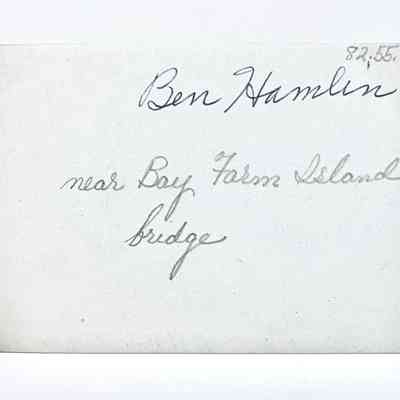 82.55.
Ben Hamlin
near Bay Farm Island
bridge